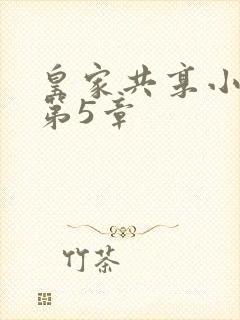 皇家共享小
第5章
竹茶